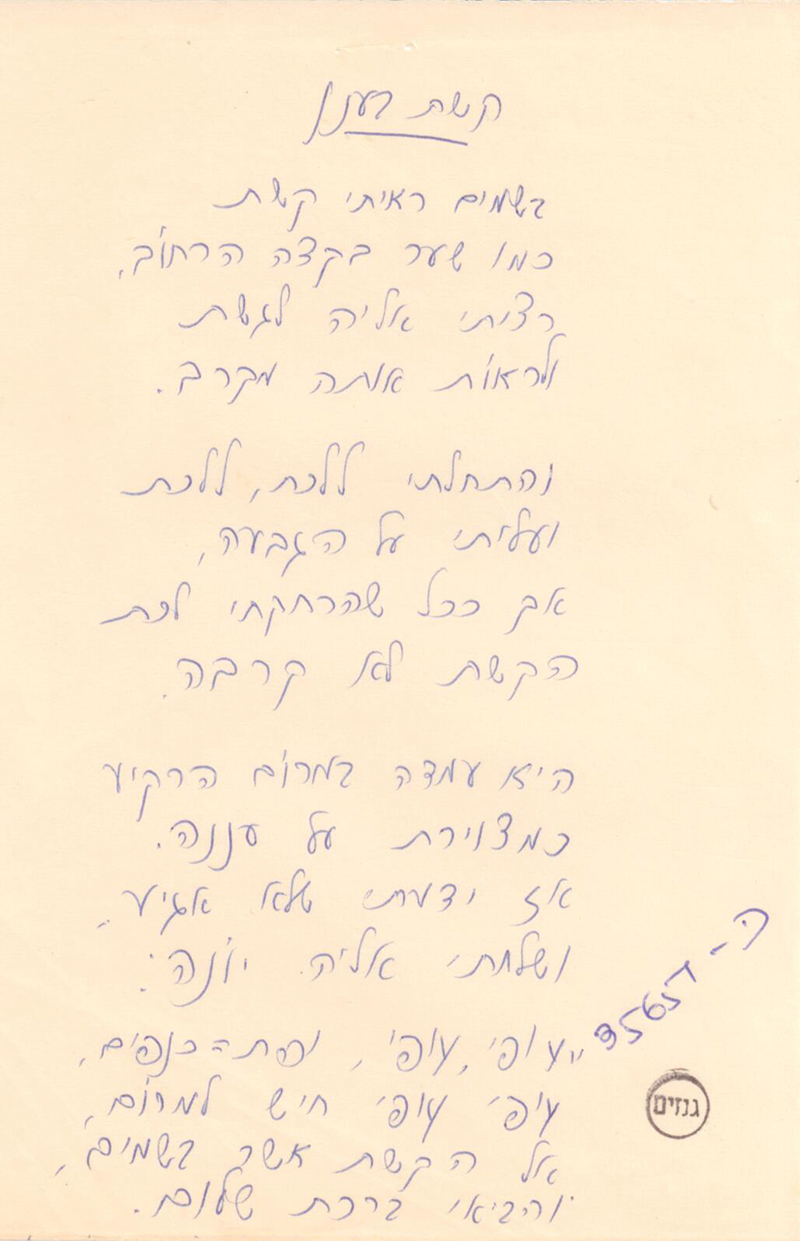 קשת בענן
בשמים ראיתי קשת
כמו שער בקצה הרחוב,
רציתי אליה לגשת
ולראות אותה מקרב.
והתחלתי ללכת, ללכת
ועליתי על הגבעה,
אך ככל שהרחקתי לכת
הקשת לא קרבה.
היא עמדה במרום הרקיע
כמצוירת על עננה.
אז ידעתי שלא אגיע,
ושלחתי אליה יונה:
"עופי, עופי, יפת-כנפים,
עופי עופי חיש למרום,
אל הקשת אשר בשמים,
והביאי ברכת שלום.
ה-35657
גנזים